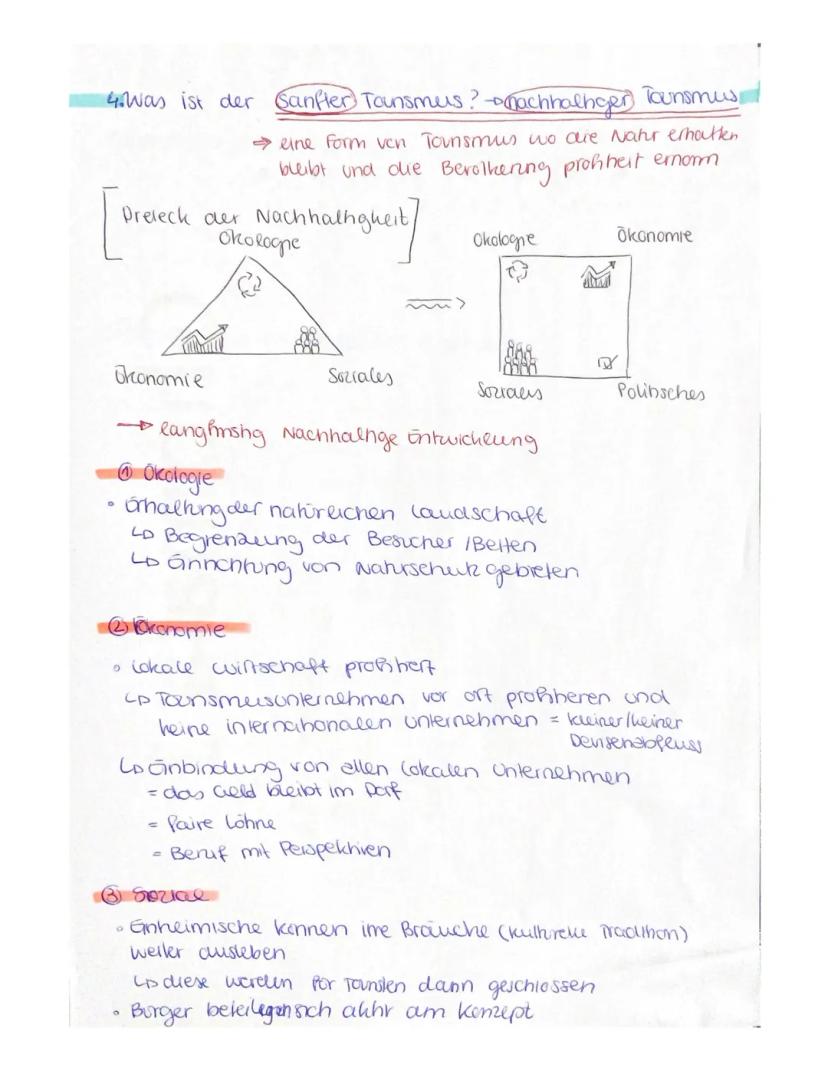 4. Was ist der sanfter Tourismus? → nachhaltiger Tourismus
⇒ eine Form von Tourismus wo die Natur erhalten
bleibt und die Bevölkerung profitiert enorm
[Dreieck der Nachhaltigkeit]
Ökologie
Ökologie Ökonomie
Ökonomie Soziales
Soziales Politisches
→ langfristig Nachhaltige Entwicklung
① Ökologie
• Erhaltung der natürlichen Landschaft
↳ Begrenzung der Besucher / Betten
↳ Einrichtung von Naturschutzgebieten
② Ökonomie
• lokale Wirtschaft profitiert
↳ Tourismusunternehmen vor ort profitieren und
keine internationalen Unternehmen = kleiner/keiner
Devisenabfluss
↳ Einbindung von allen lokalen Unternehmen
= das Geld bleibt im Dorf
= Faire Löhne
= Beruf mit Perspektiven
③ Sozial
• Einheimische können ihre Bräuche (kulturelle Tradition)
weiter ausleben
↳ diese werden für Touristen dann geschlossen
• Bürger beteiligen sich aktiv am Konzept